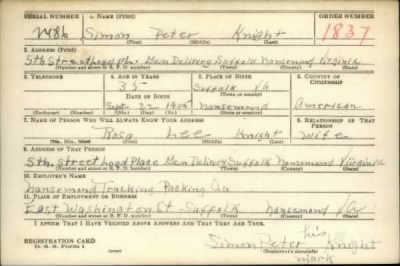 SERIAL NUMBER 1. NAME (Print) ORDER NUMBER
Simon Peter Knight 1837
(First) (Middle) (Last)
2. ADDRESS (Print)
5th Street Gen Delivery Suffolk Nansemond Virginia
(Number and street or R. F. D. number) (Town) (County) (State)
3. TELEPHONE 4. AGE IN YEARS 5. PLACE OF BIRTH 6. COUNTRY OF CITIZENSHIP
35 Suffolk VA
DATE OF BIRTH (Town or county)
Sept 22 1905 Nansemond American
(Exchange) (Number) (Mo.) (Day) (Yr.) (State or country)
7. NAME OF PERSON WHO WILL ALWAYS KNOW YOUR ADDRESS 8. RELATIONSHIP OF THAT PERSON
Rosa Lee Knight Wife
(Mr., Mrs., Miss) (First) (Middle) (Last)
9. ADDRESS OF THAT PERSON
5th Street Loyd Place Gen Delivery Suffolk Nansemond Virginia
(Number and street or R. F. D. number) (Town) (County) (State)
10. EMPLOYER'S NAME
Nansemond Packing Co
11. PLACE OF EMPLOYMENT OR BUSINESS
East Washington St Suffolk Nansemond VA
(Number and street or R. F. D. number) (Town) (County) (State)
I AFFIRM THAT I HAVE VERIFIED ABOVE ANSWERS AND THAT THEY ARE TRUE.
his
REGISTRATION CARD Simon Peter Knight
D. S. S. Form 1 mark